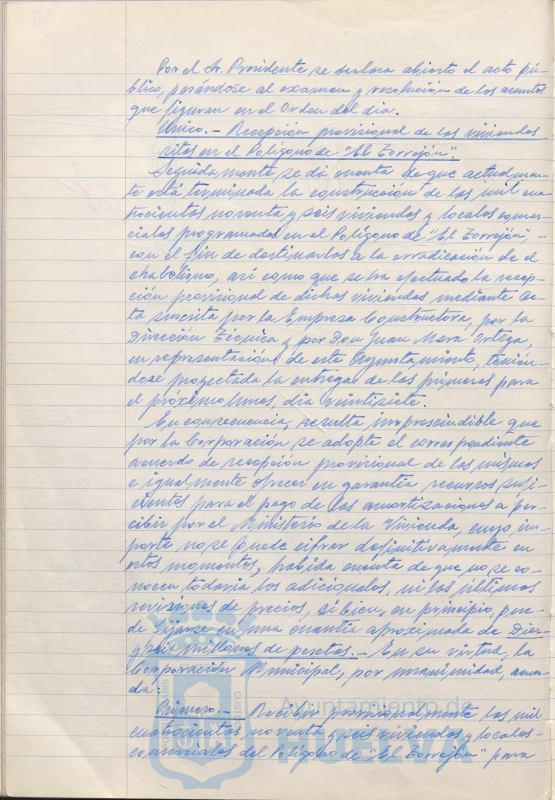 Por el Sr. Presidente se declara abierto el acto pú-
blico, pasándose al examen y resolución de los asuntos
que figuran en el Orden del día.
Unico.- Recepción provisional de las viviendas
sitas en el Polígono de "El Torrejón".
Seguidamente se dá cuenta de que actualmen-
te está terminada la construcción de las mil cua-
trocientas noventa y seis viviendas y locales comer-
ciales programados en el Polígono de "El Torrejón",
con el fin de destinarlos a la erradicación de el
chabolismo, así como que se ha efectuado la recep-
ción provisional de dichas viviendas mediante ac-
ta suscrita por la Empresa Constructora, por la
Dirección Técnica y por Don Juan Mora Ortega,
en representación de este Ayuntamiento, tenién-
dose proyectada la entrega de las primeras para
el próximo lunes, día veintisiete.
En consecuencia, resulta imprescindible que
por la Corporación se adopte el correspondiente
acuerdo de recepción provisional de las mismas
e igualmente ofrecer en garantía recursos sufi-
cientes para el pago de las amortizaciones a per-
cibir por el Ministerio de la Vivienda, cuyo im-
porte no se puede cifrar definitivamente en
estos momentos, habida cuenta de que no se co-
nocen todavía los adicionales, ni las últimas
revisiones de precios, si bien, en principio, pue-
de fijarse en una cuantía aproximada de Diez
y seis millones de pesetas.- En su virtud, la
Corporación Municipal, por unanimidad, acuer-
da:
Primero.- Recibir provisionalmente las mil
cuatrocientas noventa y seis viviendas y locales
comerciales del Polígono de "El Torrejón" para
Ayuntamiento de
HUELVA